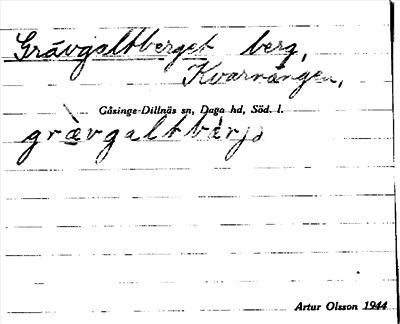 Grävgaltberget berg,
Kvarnängen,
Gåsinge-Dillnäs sn, Daga hd, Söd. l.
gràvgaltbärjə
Artur Olsson 1944